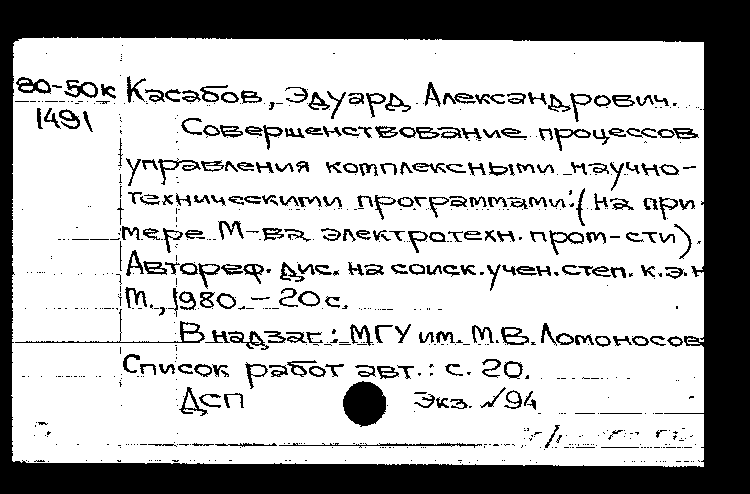 80-50к Касабов, Эдуард Александрович.
1491 Совершенствование процессов
управления комплексными научно-
техническими программами: (на при-
мере М-ва электротехн. пром-сти).
Автореф. дис. на соиск. учен. степ. к.э.н
М., 1980. – 20 с.
В надзаг.: МГУ им. М.В. Ломоносов
Список работ авт.: с. 20.
ДСП Экз. №94